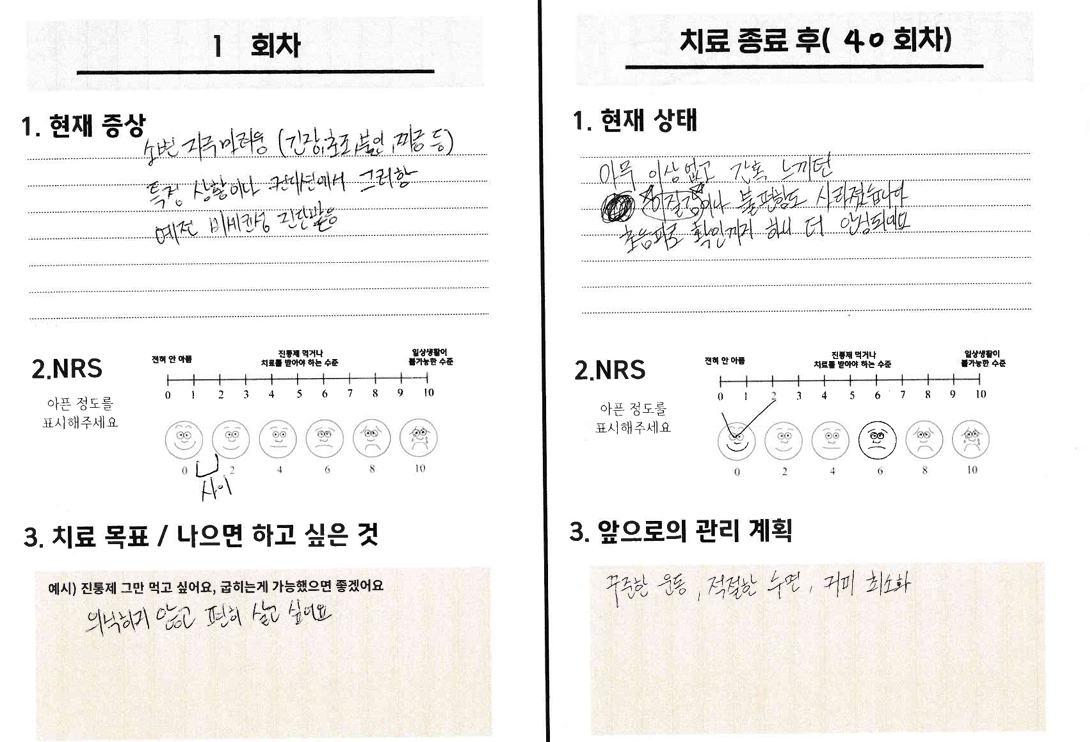 1 회차
1. 현재 증상
소변 자주 마려움 (긴장,초조,불안,찌릉 등)
특정 상황이나 컨디션에서 그러함
예전 비세균성 진단받음
2.NRS
아픈 정도를
표시해주세요
전혀 안 아픔
진통제 먹거나
치료를 받아야 하는 수준
일상생활이
불가능한 수준
0 1 2 3 4 5 6 7 8 9 10
0 2 4 6 8 10
사이
3. 치료 목표 / 나으면 하고 싶은 것
예시) 진통제 그만 먹고 싶어요, 굽히는게 가능했으면 좋겠어요
의식하지 않고 편히 살고 싶어요
치료 종료 후( 40 회차)
1. 현재 상태
아무 이상 없고 간혹 느끼던
이질감이나 불편함도 사라졌습니다
초음파로 확인까지 하니 더 안심되네요
2.NRS
아픈 정도를
표시해주세요
전혀 안 아픔
진통제 먹거나
치료를 받아야 하는 수준
일상생활이
불가능한 수준
0 1 2 3 4 5 6 7 8 9 10
0 2 4 6 8 10
3. 앞으로의 관리 계획
꾸준한 운동, 적절한 수면, 커피 최소화